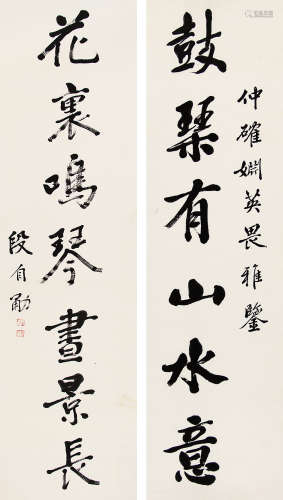 仲確婣英畏雅鑒
鼓琹有山水意
花裏鳴琴晝景長
段自勈